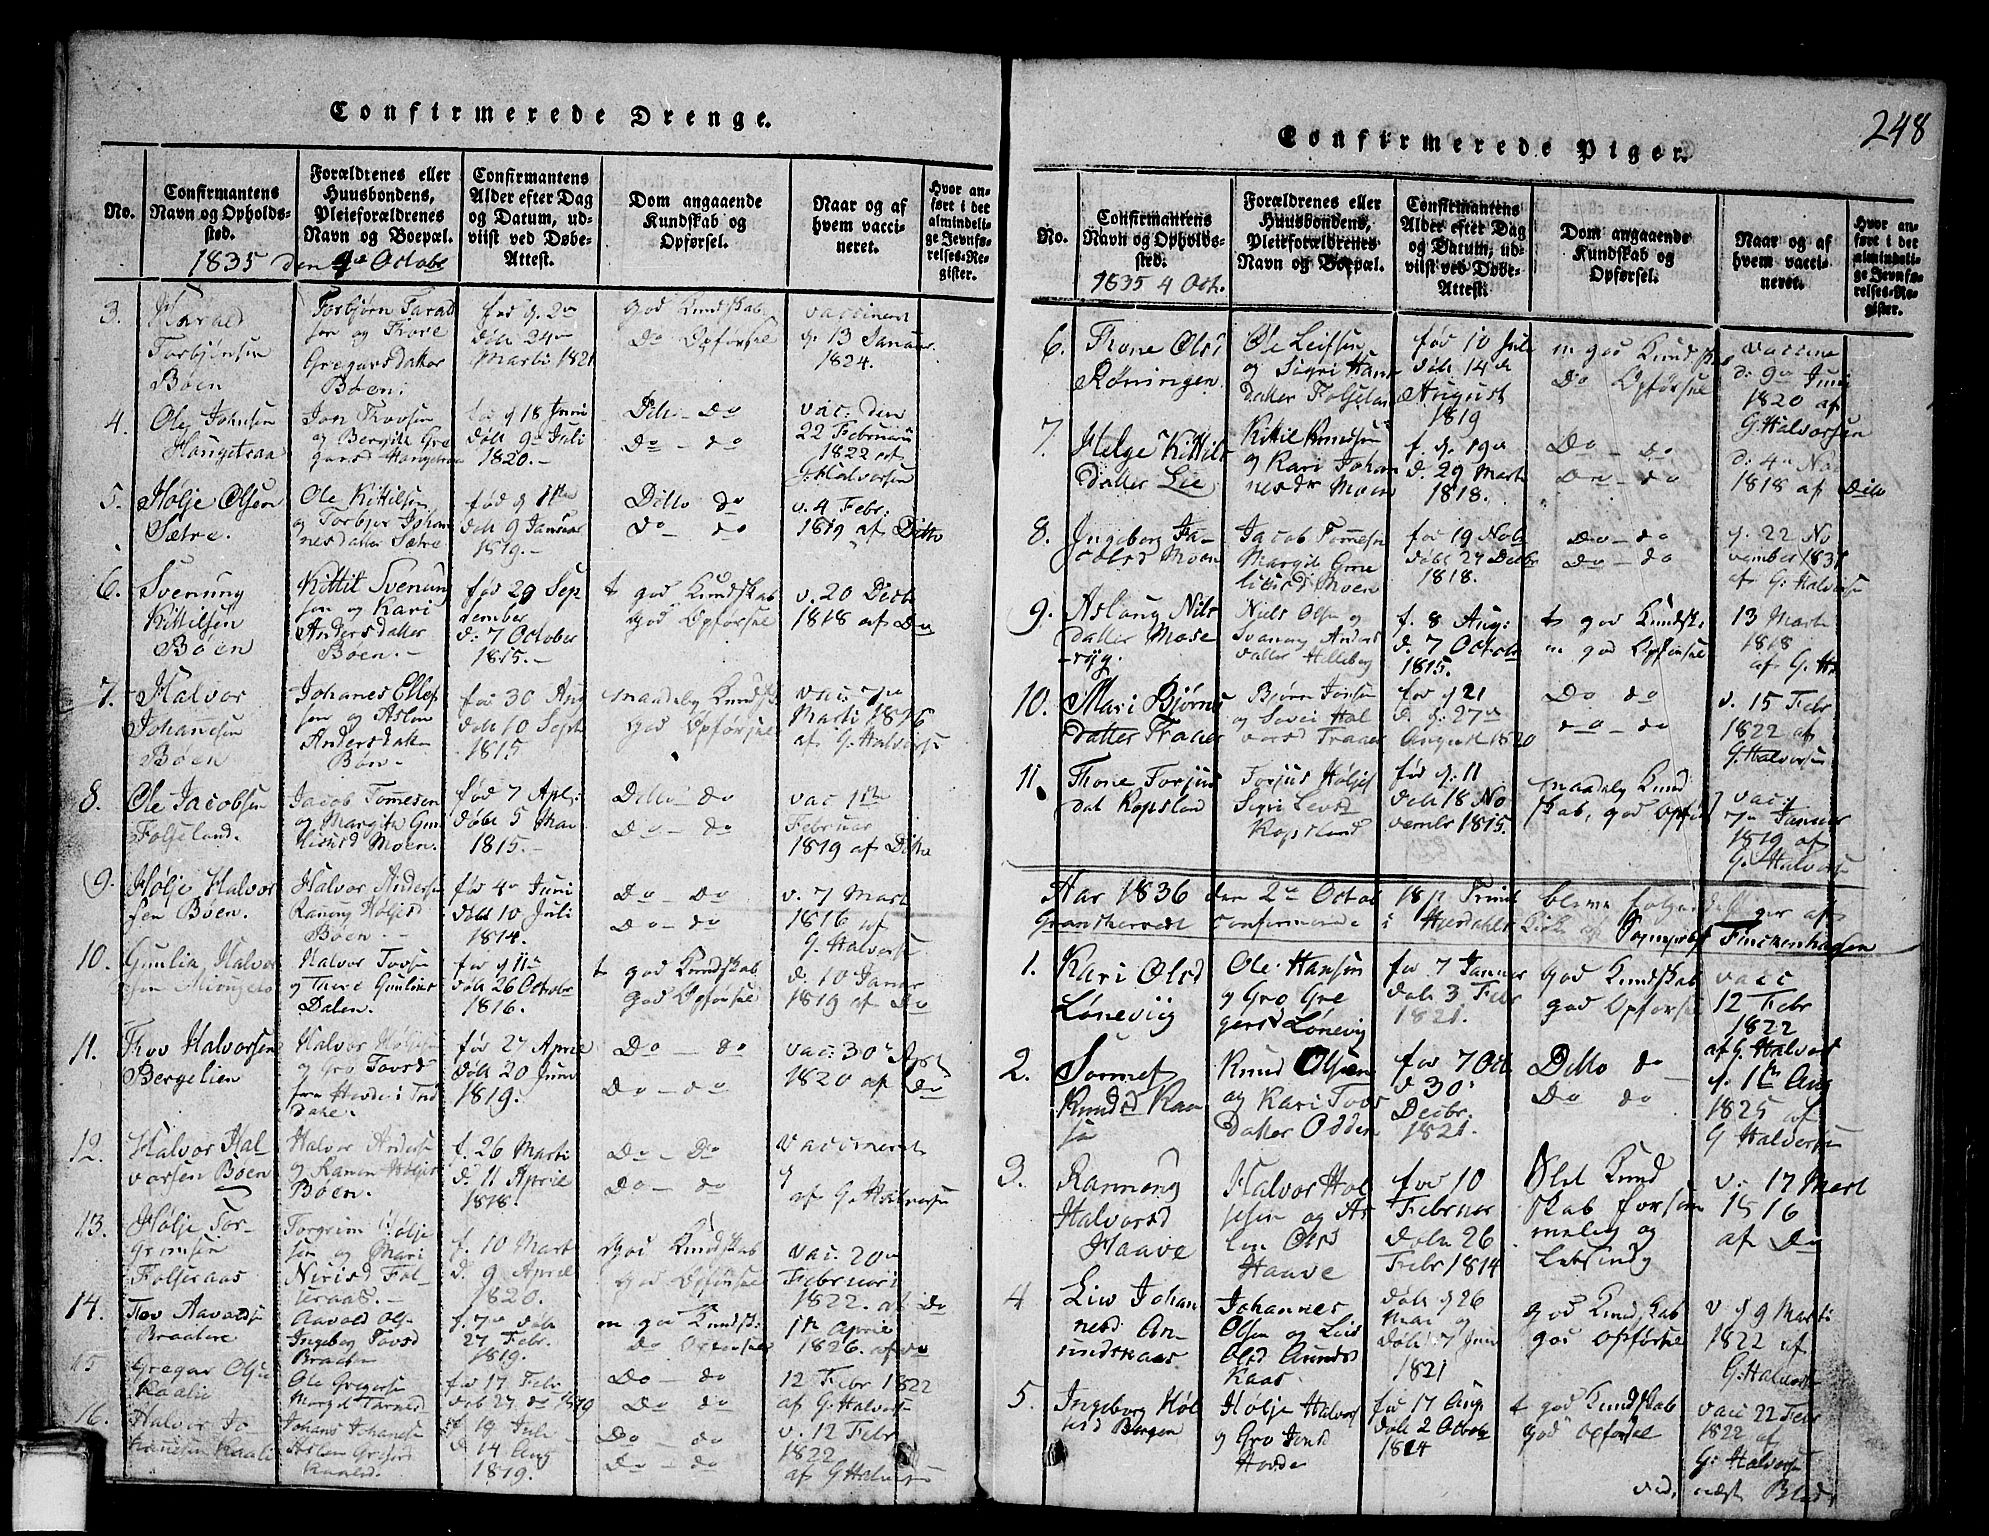 Confirmerede Drenge.
No.
Confirmantens
Navn og Opholds-
sted.
Forældrenes eller
Huusbondens,
Pleieforældrenes
Navn og Boepæl.
Confirmantens
Alder efter Dag
og Datum, ud-
viist ved Døbe-
Attest.
Dom angaaende
Kundskab og
Opførsel.
Naar og af
hvem vacci-
neret.
Hvor an-
ført i det
almindeli-
ge Jevnfø-
relses-Re-
gister.
1835 den 4de Octobr
3.
Torbjønsen
Bøen
Torbjørn Tarald
sen og Thore
Gregarsdatter
Bøen.
fød d. 2den
døbt 24de
Marti 1821
god Kundskab
Do Opførsel
vaccineret
d. 13 Januar
1824.
4.
Ole Johnsen
Haugetraa
Jon Thovsen
og Bergith Gre
garsd
fød d 18 Juni
døbt 9de Juli
1820.
Ditto Do
Do - do
vac: den
22 Februarii
1822 af
G. Halvorsen
5.
Hølje Olsen
Sætre.
Ole Kittilsen
og Torbjør Johan
nesdatter Sætre
fød d 1ste
døbt 9 Januar
1819.
Ditto do
Do do
v. 4 Febr:
1819 af Ditto
6.
Svenung
Kittilsen
Bøen
Kittil Svenung
sen og Kari
Andersdatter
Bøen.
fød 29 Sep
tember
d: 7 October
1815.
t god Kundskab
god Opførsel
v. 20 Decbr
1818 af Do
7.
Halvor
Johannesen
Bøen
Johanes Ellef
sen og Aslou
Andersdatter
Bøen
fød 30 Aug
døbt 10 Septr
1815
maadelig Kundsk
god Opførsel
vac: 7de
Marti 1816
af G. Halvorsen
8.
Ole Jacobsen
Folseland.
Jacob Tommesen
og Margith Gun
Moen.
fød 7 Apl:
døbt 5 Mai
1815.
Ditto do
Do - do
vac 1ste
Februar
1819 af Ditto
9.
Hølje Halvor
sen Bøen.
Halvor Andersen
Ranoug Høljesd
Bøen.
fød 4de Juni
døbt 10 Juli
1814.
Do Do
do do
v. 7 Marti
1816 af
G. Halvorsen
10.
Gunlia Halvor
sen
Halvor Tovsen
og Gunlius
Dalen.
fød d 11te
døbt 26 Octobr
1816.
t god Kundskab
god Opførsel
d. 10 Januar
1819 af Do
11.
Thov Halvorsen
Bergelien
Halvor
og Gro Tovsd
fra Hovde i Tud
dale.
fød 27 April
døbt 20 Juni
1819.
Do - do
Do - do
vac: 30te Apl
1820 af Do
12.
Halvor Hal
vorsen Bøen
Halvor Andersen
og Ranou Høljesd
Bøen.
f. 26 Marti
d. 11 April
1818.
Do - Do
Do - do
vaccineret
af G. Halvorsen
13.
Hølje Tor-
grimsen
Folseraas
Torgrim Hølje
sen og Mari
Nirisd Fol-
seraas.
f. 10 Mart
d. 9 April
1820.
god Kundskab
god Opførsel
vac. 20de
Februari
1822. af Do
14.
Tov Aavoldsen
Braatene
Aavold Ols
Ingeborg Tovsd
Braaten
f. 7de døbt
27 Febr.
1819.
m god Kundsk:
do Opførsel
1ste Aprill
1826. af do
15
Gregar Olsen
Kaalie
Ole Gregersen
fød 17 Febr
døbt 27 do 1819
Do - do
Do do
12 Febr 1822
af G. Halvorsen
16.
Halvor Jo-
hannesen Kaali
Johans Johansen
Aslou Gregersd
fød 19 Juli
d 14 Aug
1819.
Do - do
Do do
v. 12 Febr
1822
af G Halvorsen
248
Confirmerede Piger.
No.
Confirmantens
Navn og Opholds-
sted.
Forældrenes eller
Huusbondens,
Pleieforældrenes
Navn og Boepæl.
Confirmantens
Alder efter Dag
og Datum, ud-
viist ved Døbe-
Attest.
Dom angaaende
Kundskab og
Opførsel.
Naar og af
hvem vacci-
neret.
Hvor an-
ført i det
almindeli-
ge Jevnfø-
relses-Re-
gister.
1835 4 Oct.
6.
Thone Olsd
Røningen
Ole Leifsen
og Sigri Hans
datter Folseland
fød 10 Juli
døbt 14de
August
1819
m god Kundsk
Do Opførsel
vaccine
d: 9de Juni
1820 af
G. Halvorsen
7.
Helge Kittils
datter Lie
Kittil Knudsen
og Kari Johan
nesdr Moen
f. d. 19de
d. 29 Marti
1818.
Do - do
do - do
d: 4de Nov
1818 af Ditto
8.
Ingeborg Ja-
cobsd Moen
Jacob Tommesen
Margith
Moen
fød 19 Nov
døbt 27 Decbr
1818.
Do - do
Do - do
d. 22 No
vember 1831
af G. Halvorsen
9.
Aslaug Nils
datter Mose
ryg.
Niels Olsen og
Svanaug Anders
datter Helleberg
f. 8 Aug:
d. 7 Octobr
1815.
t god Kundsk:
m god Opførsel
13 Marti
1818
af G. H.
10.
Mari Bjørns
datter Traaer
Bjørn Jonsen
og Hal
vorsd Traaer
fød d 21
d d: 27de
August 1820
Do do
do - do
v. 15 Febr
1822 af
G. Halvorsen
11.
Thone Torjus
dat Kopsland
Torjus Høljes
Sigri Levsd
Kopsland
fød d. 11
døbt 18 No
vembr 1815.
maadelig Kund
skab, god Opførs
vac:
7de Januar
1819 af
G. Halvorsen
Aar 1836 den 2de Octob 18 p Trinit bleve følgende Piger af
Gransherred confirmerede i Hjerdahls Kirke af Sognepræst Finckenhagen
1.
Kari Olsd
Lønevig
Ole Hansen
og Gro Gre
gersd Lønevig
fød 7 Januar
døbt 3 Febr
1821.
god Kundskab
god Opførsel
vacc
12 Febr
1822
af G. Halvors
2.
Knudsd
Knud Olsen
og Kari Tovs
datter Odden
fød 7 Oct
d 30te
Decbr.
1821.
Ditto do
Do do
d. 1ste Aug
1825 af
G Halvorsen
3.
Rannoug
Halvorsd
Haave
Halvor Hol
jesen og As
lou Olsd
Haave
fød 10
Februar
døbt 26
Febr 1814
Slet Kund
skab forsøm
melig og
Letsindig
v. 17 Mart
1816
af Do
4
Liv Johan
nesd An-
undskaas
Johannes
Olsen og Liv
Olsd Aunds
kaas
døbt d 26
Mai og
døbt 7 Juni
1821
god Kundskab
god Opførsel
v d 9 Marti
1822 af
G. Halvorsen
5.
Ingeborg Høl
jesd Bergen
Hølje Halvors
og Gro Jonsd
Hovde
fød 17 Aug
døbt 2 Octobr
1814
t god Kundskab
god Opførsel
vacc 22 Febr
1822 af
G: Halvorsen
vid. næste Blad